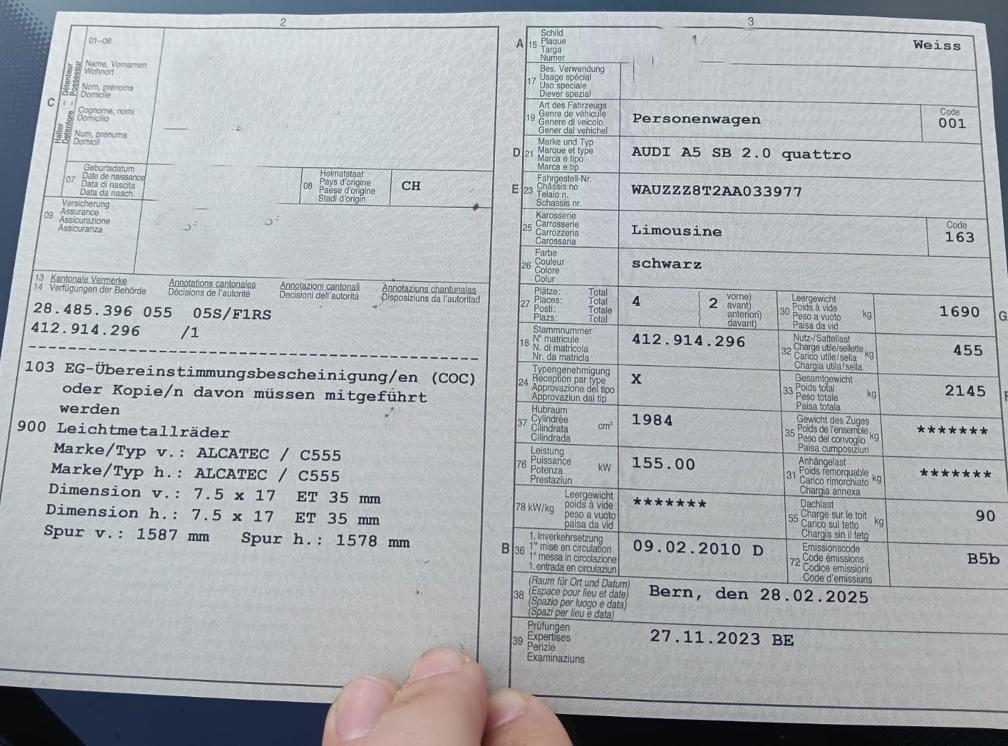 2
01-06
C
Halter Détenteur
Detentore Possessur
Name, Vornamen
Wohnort
Nom, prénoms
Domicile
Cognome, nomi
Domicilio
Num, prenums
Domicil
07
Geburtsdatum
Date de naissance
Data di nascita
Data da nasch.
08
Heimatstaat
Pays d'origine
Paese d'origine
Stadi d'origin
CH
09
Versicherung
Assurance
Assicurazione
Assicuranza
13 Kantonale Vermerke Annotations cantonales Annotazioni cantonali Annotaziuns chantunalas
14 Verfügungen der Behörde Décisions de l'autorité Decisioni dell'autorità Disposiziuns da l'autoritad
28.485.396 055 05S/F1RS
412.914.296 /1
103 EG-Übereinstimmungsbescheinigung/en (COC)
oder Kopie/n davon müssen mitgeführt
werden
900 Leichtmetallräder
Marke/Typ v.: ALCATEC / C555
Marke/Typ h.: ALCATEC / C555
Dimension v.: 7.5 x 17 ET 35 mm
Dimension h.: 7.5 x 17 ET 35 mm
Spur v.: 1587 mm Spur h.: 1578 mm
3
A 15
Schild
Plaque
Targa
Numer
Weiss
17
Bes. Verwendung
Usage spécial
Uso speciale
Diever spezial
19
Art des Fahrzeugs
Genre de véhicule
Genere di veicolo
Gener dal vehichel
Personenwagen
Code
001
D 21
Marke und Typ
Marque et type
Marca e tipo
Marca e tip
AUDI A5 SB 2.0 quattro
E 23
Fahrgestell-Nr.
Châssis no
Telaio n.
Schassis nr.
WAUZZZ8T2AA033977
25
Karosserie
Carrosserie
Carrozzeria
Carossaria
Limousine
Code
163
26
Farbe
Couleur
Colore
Colur
schwarz
27
Plätze: Total
Places: Total
Posti: Totale
Plazs: Total
4
2
vorne)
avant)
anteriori)
davant)
30
Leergewicht
Poids à vide
Peso a vuoto
Paisa da vid
kg
1690
G
18
Stammnummer
N° matricule
N. di matricola
Nr. da matricla
412.914.296
32
Nutz-/Sattellast
Charge utile/sellette
Carico utile/sella
Chargia utila/sella
kg
455
24
Typengenehmigung
Réception par type
Approvazione del tipo
Approvaziun dal tip
X
33
Gesamtgewicht
Poids total
Peso totale
Paisa totala
kg
2145
F
37
Hubraum
Cylindrée
Cilindrata
Cilindrada
cm³
1984
35
Gewicht des Zuges
Poids de l'ensemble
Peso del convoglio
Paisa cumposiziun
kg
*******
76
Leistung
Puissance
Potenza
Prestaziun
kW
155.00
31
Anhängelast
Poids remorquable
Carico rimorchiato
Chargia annexa
kg
*******
78 kW/kg
Leergewicht
poids à vide
peso a vuoto
paisa da vid
*******
55
Dachlast
Charge sur le toit
Carico sul tetto
Chargia sin il tetg
kg
90
B 36
1. Inverkehrsetzung
1re mise en circulation
1a messa in circolazione
1. entrada en circulaziun
09.02.2010 D
72
Emissionscode
Code émissions
Codice emissioni
Code d'emissiuns
B5b
38
(Raum für Ort und Datum)
(Espace pour lieu et date)
(Spazio per luogo e data)
(Spazi per lieu e data)
Bern, den 28.02.2025
39
Prüfungen
Expertises
Perizie
Examinaziuns
27.11.2023 BE